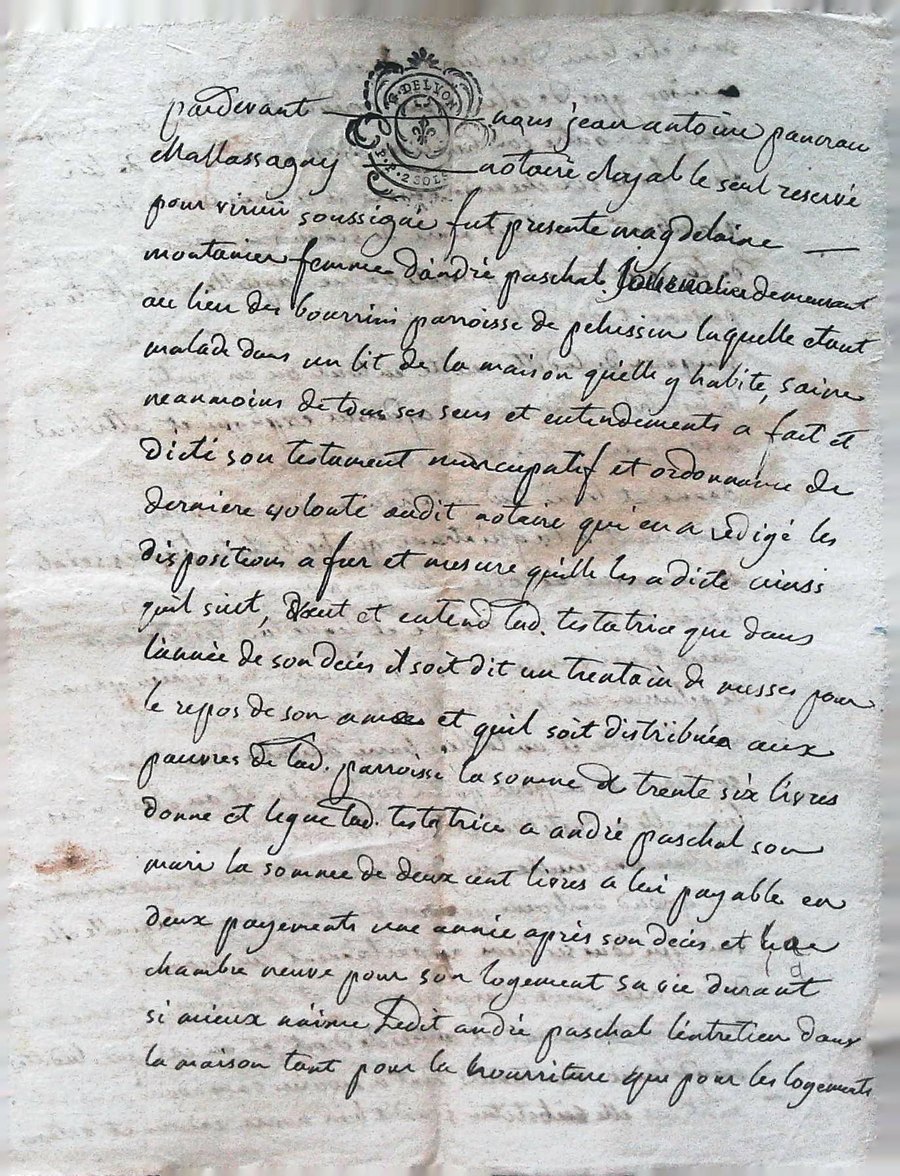 G. DE LYON
P. P. 2 SOLS
pardevant nous jean antoine pancrau
Mallassagny notaire Royal le seul reservé
pour virieu soussigné fut presente magdelaine
montanier femme d'andré paschal demeurant
au lieu des bourrins parroisse de pelussin laquelle etant
malade dans un lit de la maison quelle y habite, saine
neanmoins de tous ses sens et entendements a fait et
dicté son testament nuncupatif et ordonnance de
derniere volonté audit notaire qui en a redigé les
dispositions a fur et mesure quelle les a dicté ainsi
quil suit, veut et entend lad. testatrice que dans
l'année de son decés il soit dit un trentain de messes pour
le repos de son ame et quil soit distribué aux
pauvres de lad. parroisse la somme de trente six livres
donne et legue lad. testatrice a andré paschal son
mari la somme de deux cent livres a lui payable en
deux payements une année après son decés et
chambre neuve pour son logement sa vie durant
si mieux n'aime Ledit andré paschal l'entretien dans
la maison tant pour la nourriture que pour les logements